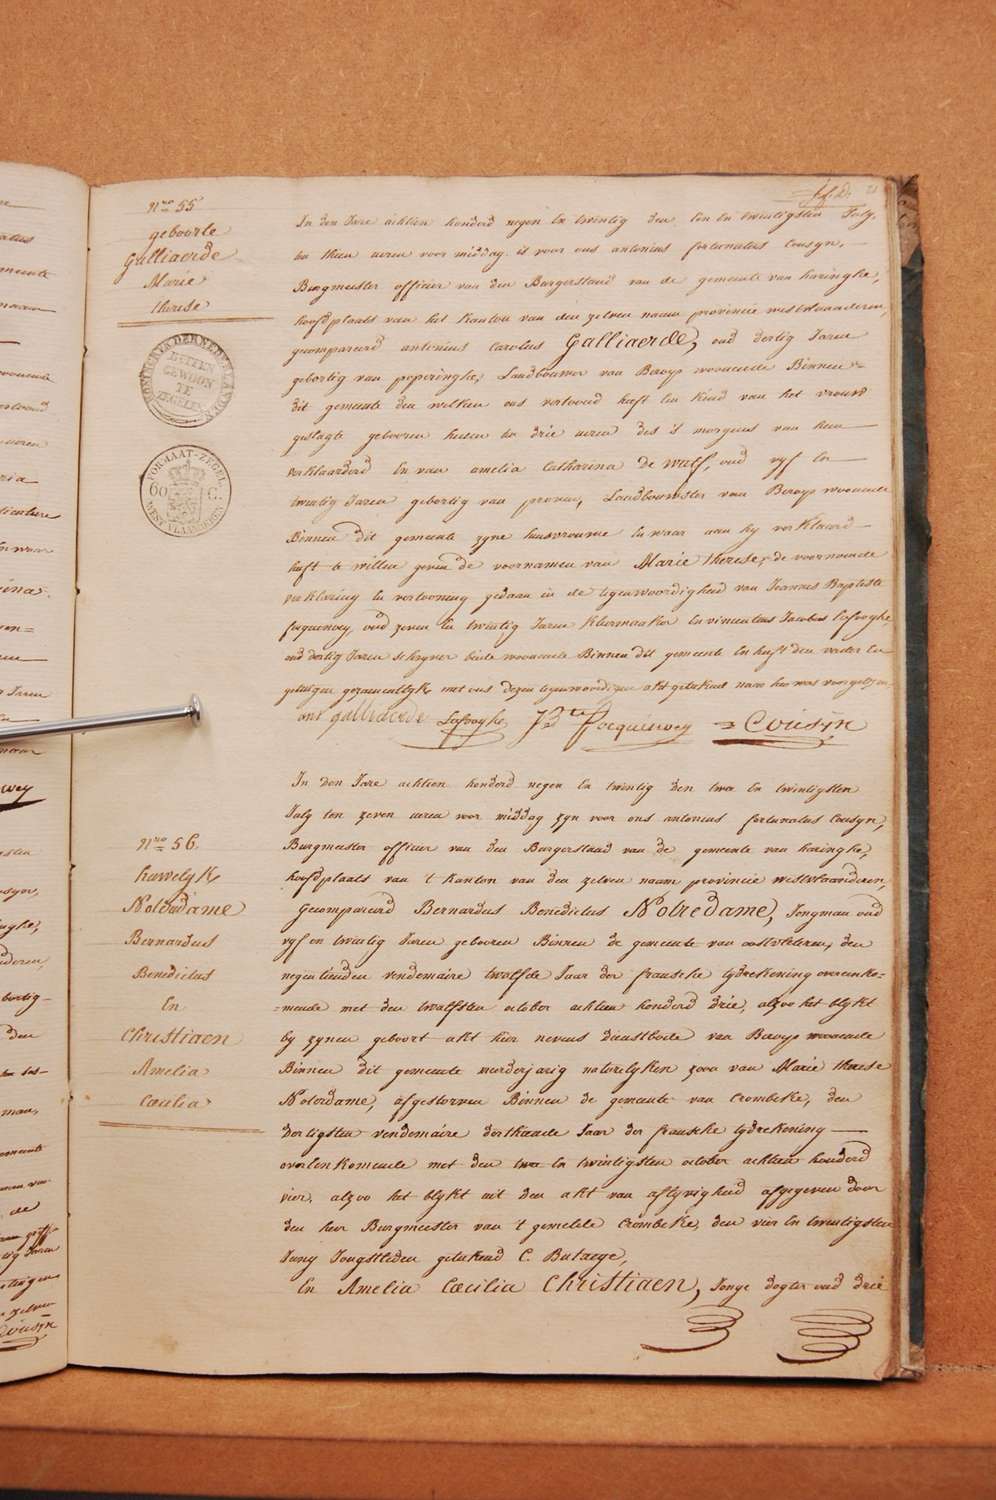 Nro 55
geboorte
Galliaerde
Marie
therese
BUITEN
GEWOON
TE
ZEGELEN
FORMAAT-ZEGEL
60 C.
WEST VLAANDEREN
21
In den Jare achtien honderd negen En twintig den Een En twintigsten July,
ten thien ueren voor middag is voor ons antonius fortunatus Cousyn,
Burgmeester officier van den Burgerstand van de gemeente van haringhe,
hoofdplaats van het Kanton van den zelven naem provincie westvlaanderen,
gecompareerd antonius Carolus Galliaerde, oud dertig Jaren
gebortig van poperinghe, Landbouwer van Beroep woonende Binnen
dit gemeente den welken ons vertoond heeft Een kind van het vrouw
geslagte gebooren heden ten drie ueren des 's morgens van hem
verklaarderd En van amelia Catharina De Wulf, oud vyf En
twintig Jaren gebortig van proven, Landbouwster van Beroep woonende
Binnen dit gemeente zyne huisvrouwe En waar aan hy verklaerd
heeft te willen geven de voornamen van Marie therese, de voornoemde
verklaring En vertooning gedaan in de tegenwoordigheid van Joannes Baptiste
Jacquemoy, oud zeven En twintig Jaren kleermaaker En vincentius Jacobus Lafooghe,
oud dertig Jaren schryver beide woonende Binnen dit gemeente En heeft den vader En
getuigen gezamentlyk met ons dezen tegenwoordigen akt geteekend naar hun was voorgelezen
ant galliaerde Lafooghe J Bte Jacquemoy Cousyn
Nro 56.
huwelyk
Notredame
Bernardus
Benedictus
En
Christiaen
Amelia
Cœcilia
In den Jare achtien honderd negen En twintig den twee En twintigsten
July ten zeven ueren voor middag zyn voor ons antonius fortunatus Cousyn,
Burgmeester officier van den Burgerstand van de gemeente van haringhe,
hoofdplaats van 't kanton van den zelven naam provincie westvlaanderen,
Gecompareerd Bernardus Benedictus Notredame, Jongman oud
vyf en twintig Jaren gebooren Binnen de gemeente van oostvleteren, den
negentienden vendemaire twalfde Jaar der fransche tydrekening overeenko=
=mende met den twalfsten october achtien honderd drie, alzoo het blykt
by zynen geboort akt hier nevens dienstbode van Beroep woonende
Binnen dit gemeente meerderjarig natuerlyken zoon van Marie therese
Noterdame, afgestorven Binnen de gemeente van Crombeke, den
dertigsten vendemaire derthiende Jaar der fransche tydrekening
overeenkomende met den twee En twintigsten october achtien honderd
vier, alzoo het blykt uit den akt van aflyvigheid afgegeven door
den heer Burgmeester van 't gemelde Crombeke, den vier En twintigsten
Juny Jongstleden geteekend C. Butaege,
En Amelia Cœcilia Christiaen, Jonge dogter oud drie